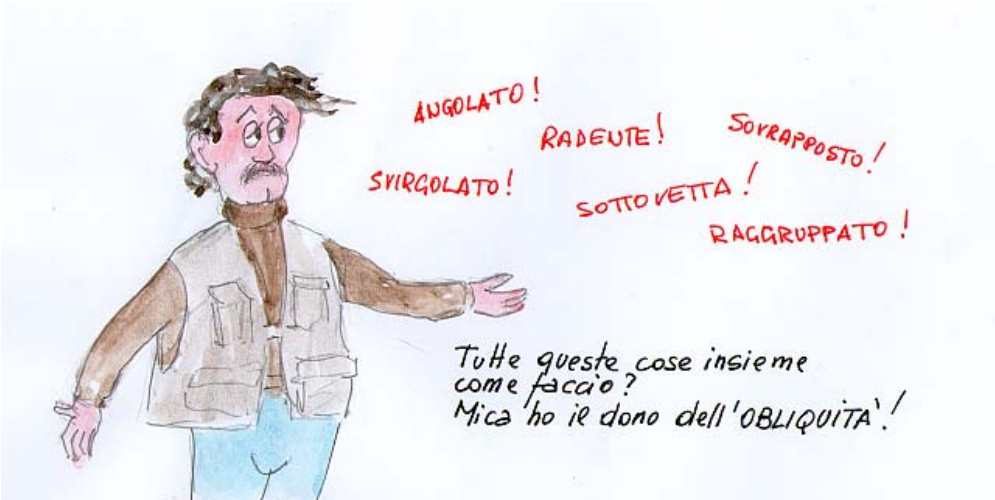 ANGOLATO!
RADENTE!
SOVRAPPOSTO!
SVIRGOLATO!
SOTTOVETTA!
RAGGRUPPATO!
Tutte queste cose insieme
come faccio?
Mica ho il dono dell'OBLIQUITA'!